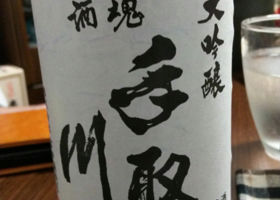 大吟醸
手取
川
酒魂